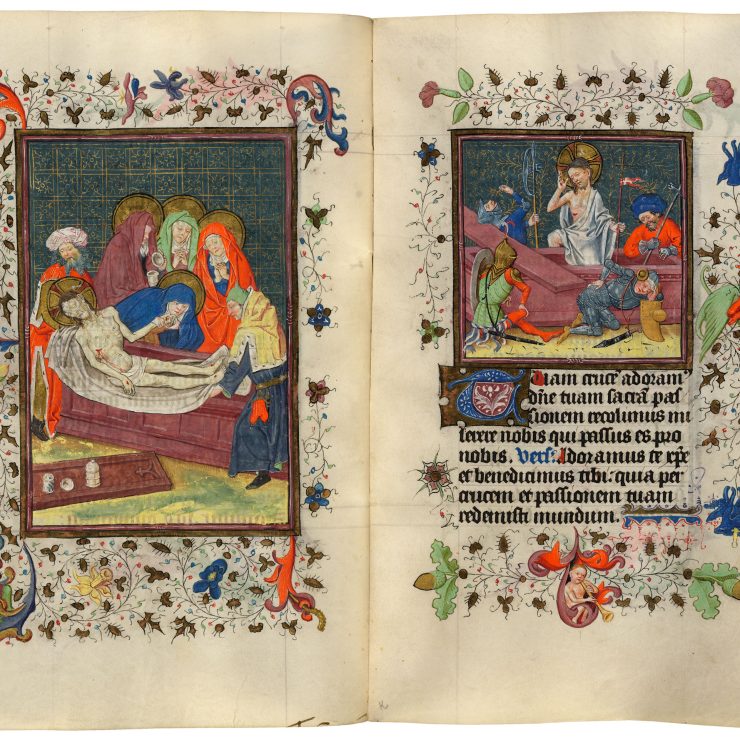 Tuam cruce adoram
dne tuam sacra pas
sionem recolimus mi
serere nobis qui passus es pro
nobis. Vers. Adoramus te xpe
et benedicimus tibi: quia per
crucem et passionem tuam
redemisti mundum.